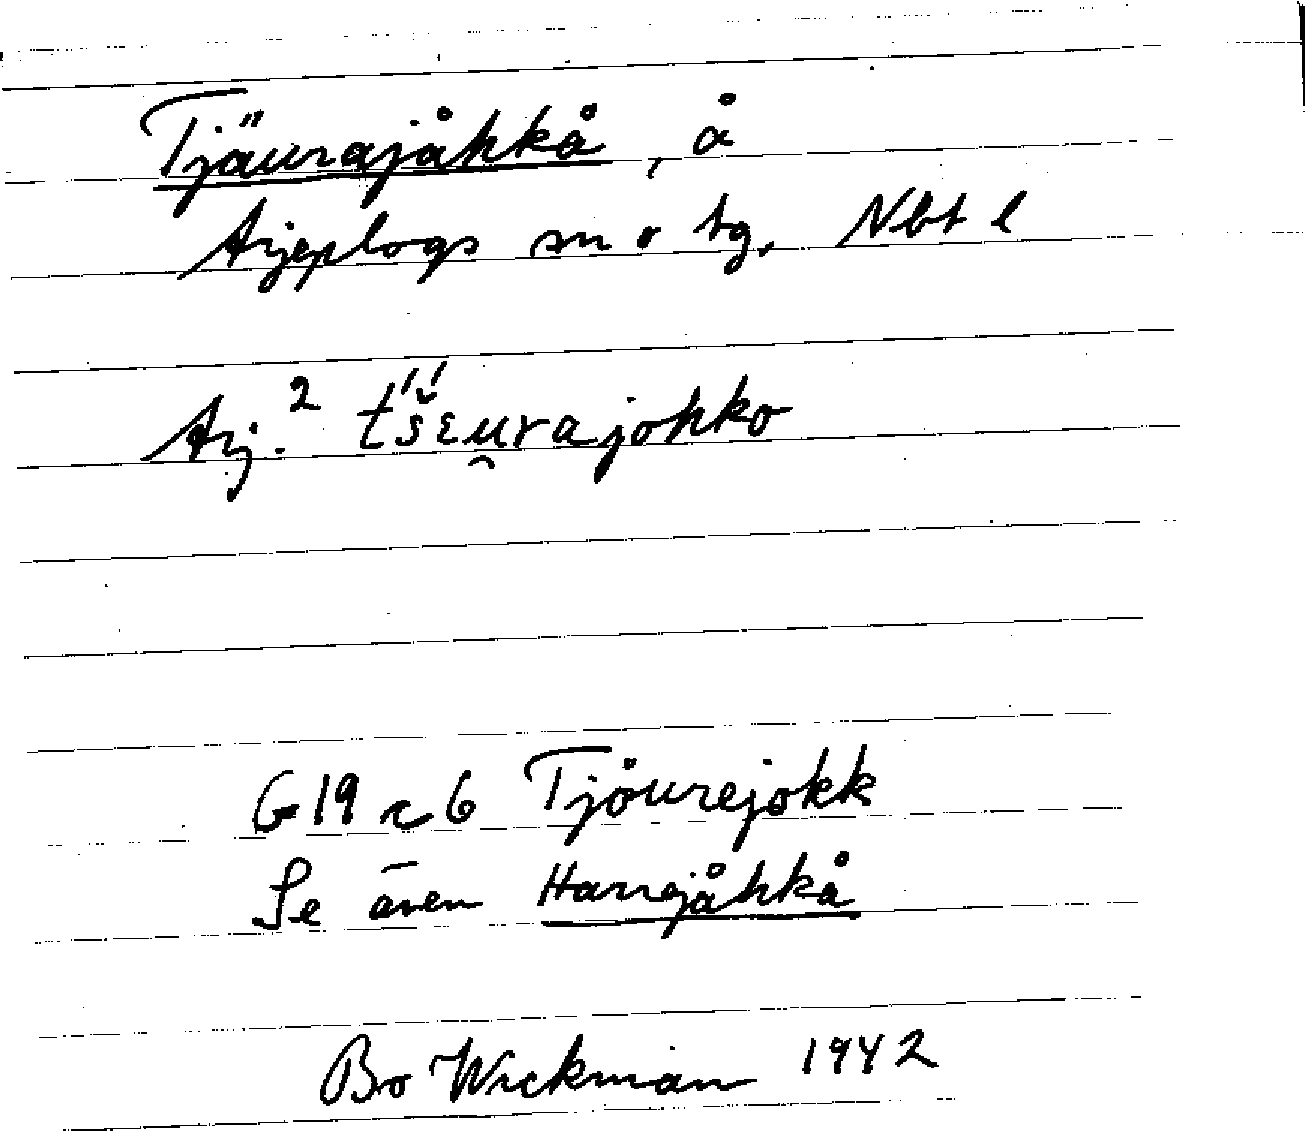 Tjäurajåhkå, å
Arjeplogs sn o tg, Nbt l
Arj.² t´š̌´ɛu̯rajohko
G19 c 6 Tjåurejokk
Se även Harrejåhkå
Bo Wickman 1942